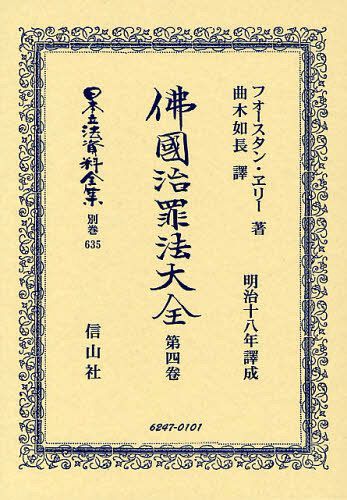 フォースタン・ヱリー 著
曲木如長 譯
明治十八年譯成
佛國治罪法大全
第四卷
日本立法資料全集
別巻
635
信山社
6247-0101